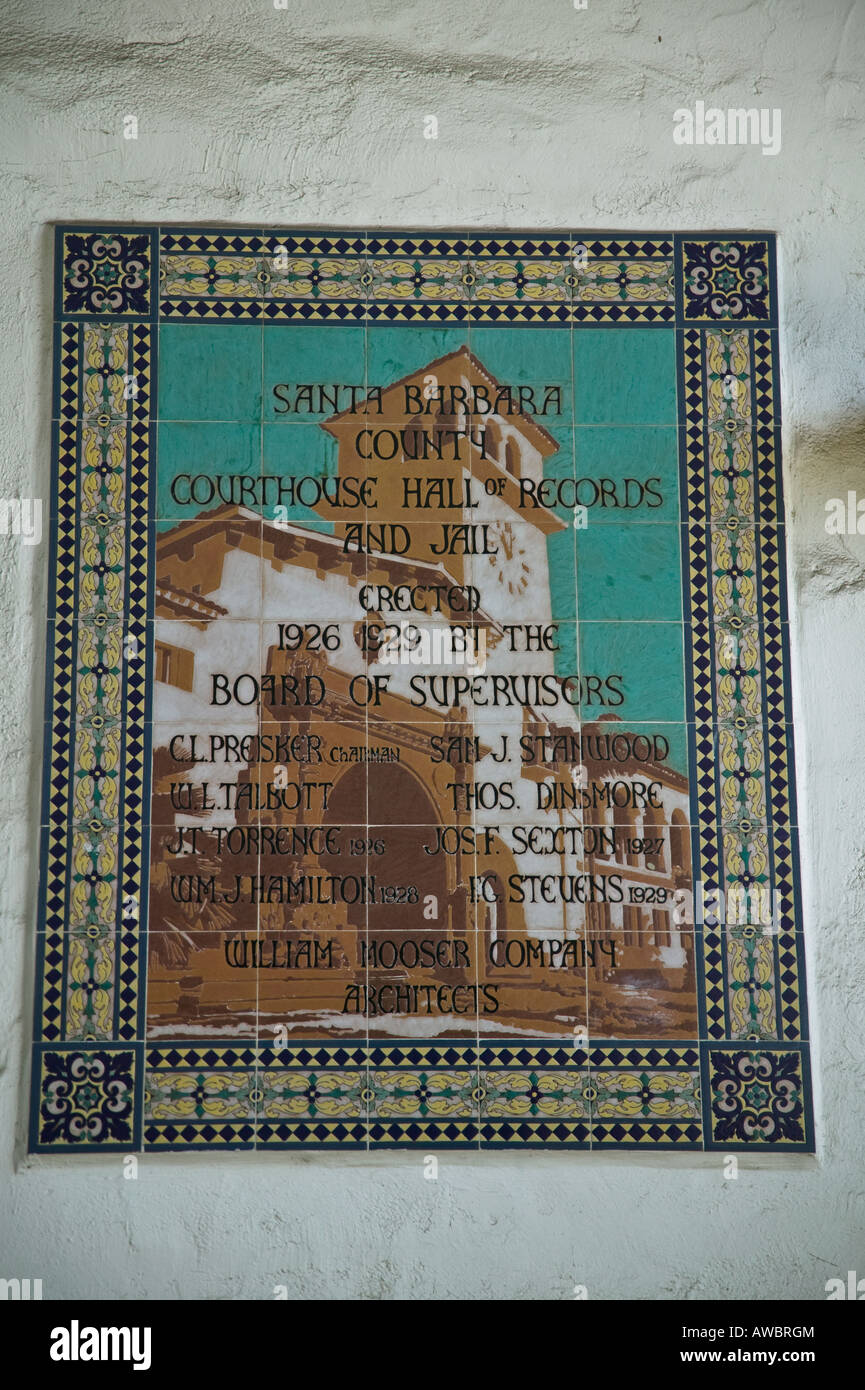 SANTA BARBARA
COUNTY
COURTHOUSE HALL OF RECORDS
AND JAIL
ERECTED
1926 1929 BY THE
BOARD OF SUPERVISORS
C.L. PREISKER CHAIRMAN SAM J. STANWOOD
W.L. TALBOTT THOS. DINSMORE
J.T. TORRENCE 1926 JOS. F. SEXTON 1927
WM. J. HAMILTON 1928 F.G. STEVENS 1929
WILLIAM MOOSER COMPANY
ARCHITECTS
alamy
Image ID: AWBRGM
www.alamy.com